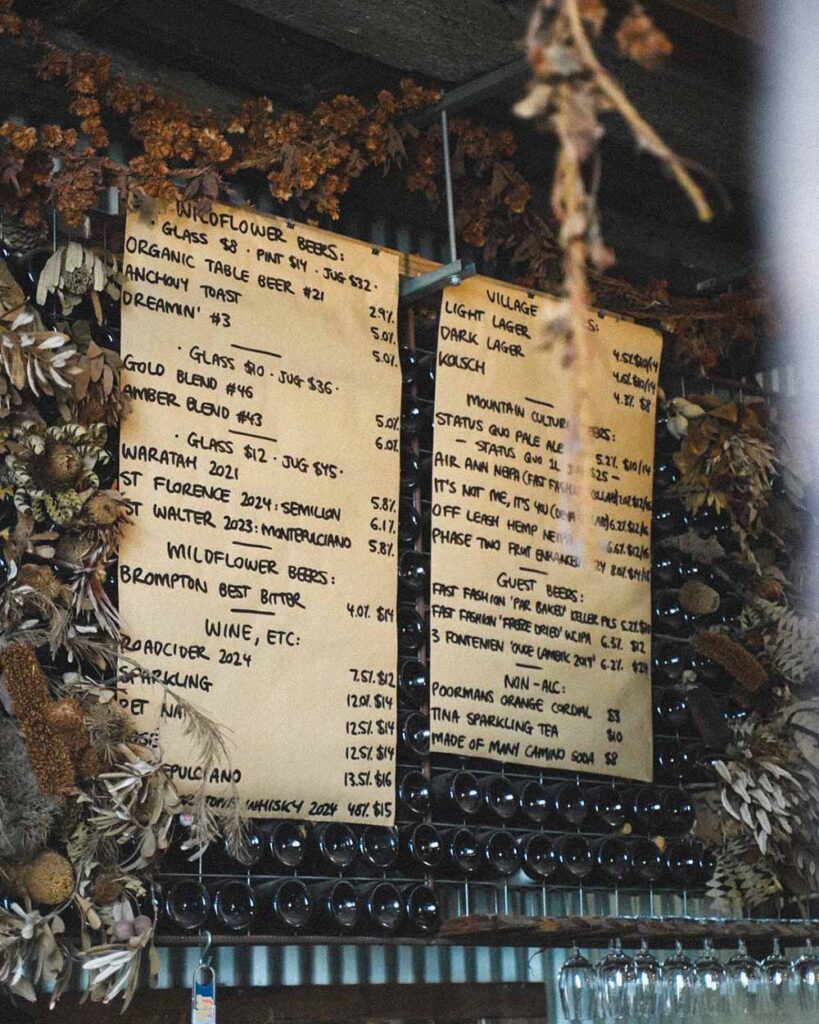 WILDFLOWER BEERS:
· GLASS $8 · PINT $14 · JUG $32 ·
ORGANIC TABLE BEER #21 2.9%
ANCHOVY TOAST 5.0%
DREAMIN' #3 5.0%
· GLASS $10 · JUG $36 ·
GOLD BLEND #46 5.0%
AMBER BLEND #43 6.0%
· GLASS $12 · JUG $45 ·
WARATAH 2021 5.8%
ST FLORENCE 2024: SEMILLON 6.1%
ST WALTER 2023: MONTEPULCIANO 5.8%
MILDFLOWER BEERS:
BROMPTON BEST BITTER 4.0% $14
WINE, ETC:
ROADCIDER 2024 7.5% $12
SPARKLING 12.0% $14
PET NAT 12.5% $14
12.5% $14
13.5% $16
WHISKY 2024 48% $15
VILLAGE
LIGHT LAGER 4.5% $10/14
DARK LAGER 4.6% $10/14
KOLSCH 4.8% $8
MOUNTAIN CULTURE BEERS:
STATUS QUO PALE ALE 5.2% $10/14
— STATUS QUO 1L $25 —
AIR ANN NEIPA (FAST FASHION COLLAB) $12/16
IT'S NOT ME, IT'S 4U 6.2% $12/16
OFF LEASH HEMP 6.6% $12/16
PHASE TWO FRUIT ENHANCED 8.0% $14/18
GUEST BEERS:
FAST FASHION 'PAR BAKED' KELLER PILS 5.2%
FAST FASHION 'FREEZE DRIED' WCIPA 6.5% $12
3 FONTEINEN 'OUDE LAMBIK 2017' 6.2% $24
NON-ALC:
POORMANS ORANGE CORDIAL $8
TINA SPARKLING TEA $10
MADE OF MANY CAMINO SODA $8